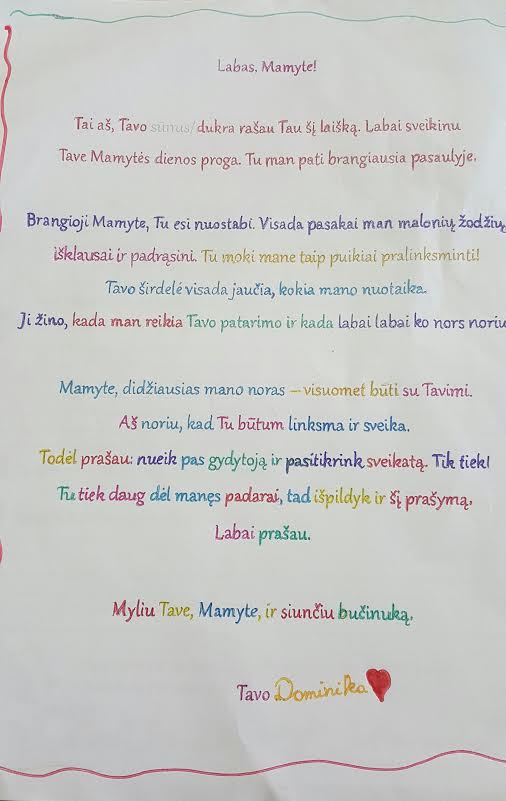 Labas, Mamyte!
Tai aš, Tavo sūnus/dukra rašau Tau šį laišką. Labai sveikinu
Tave Mamytės dienos proga. Tu man pati brangiausia pasaulyje.
Brangioji Mamyte, Tu esi nuostabi. Visada pasakai man malonių žodžių,
išklausai ir padrąsini. Tu moki mane taip puikiai pralinksminti!
Tavo širdelė visada jaučia, kokia mano nuotaika.
Ji žino, kada man reikia Tavo patarimo ir kada labai labai ko nors noriu
Mamyte, didžiausias mano noras – visuomet būti su Tavimi.
Aš noriu, kad Tu būtum linksma ir sveika.
Todėl prašau: nueik pas gydytoją ir pasitikrink sveikatą. Tik tiek!
Tu tiek daug dėl manęs padarai, tad išpildyk ir šį prašymą.
Labai prašau.
Myliu Tave, Mamyte, ir siunčiu bučinuką.
Tavo Dominika